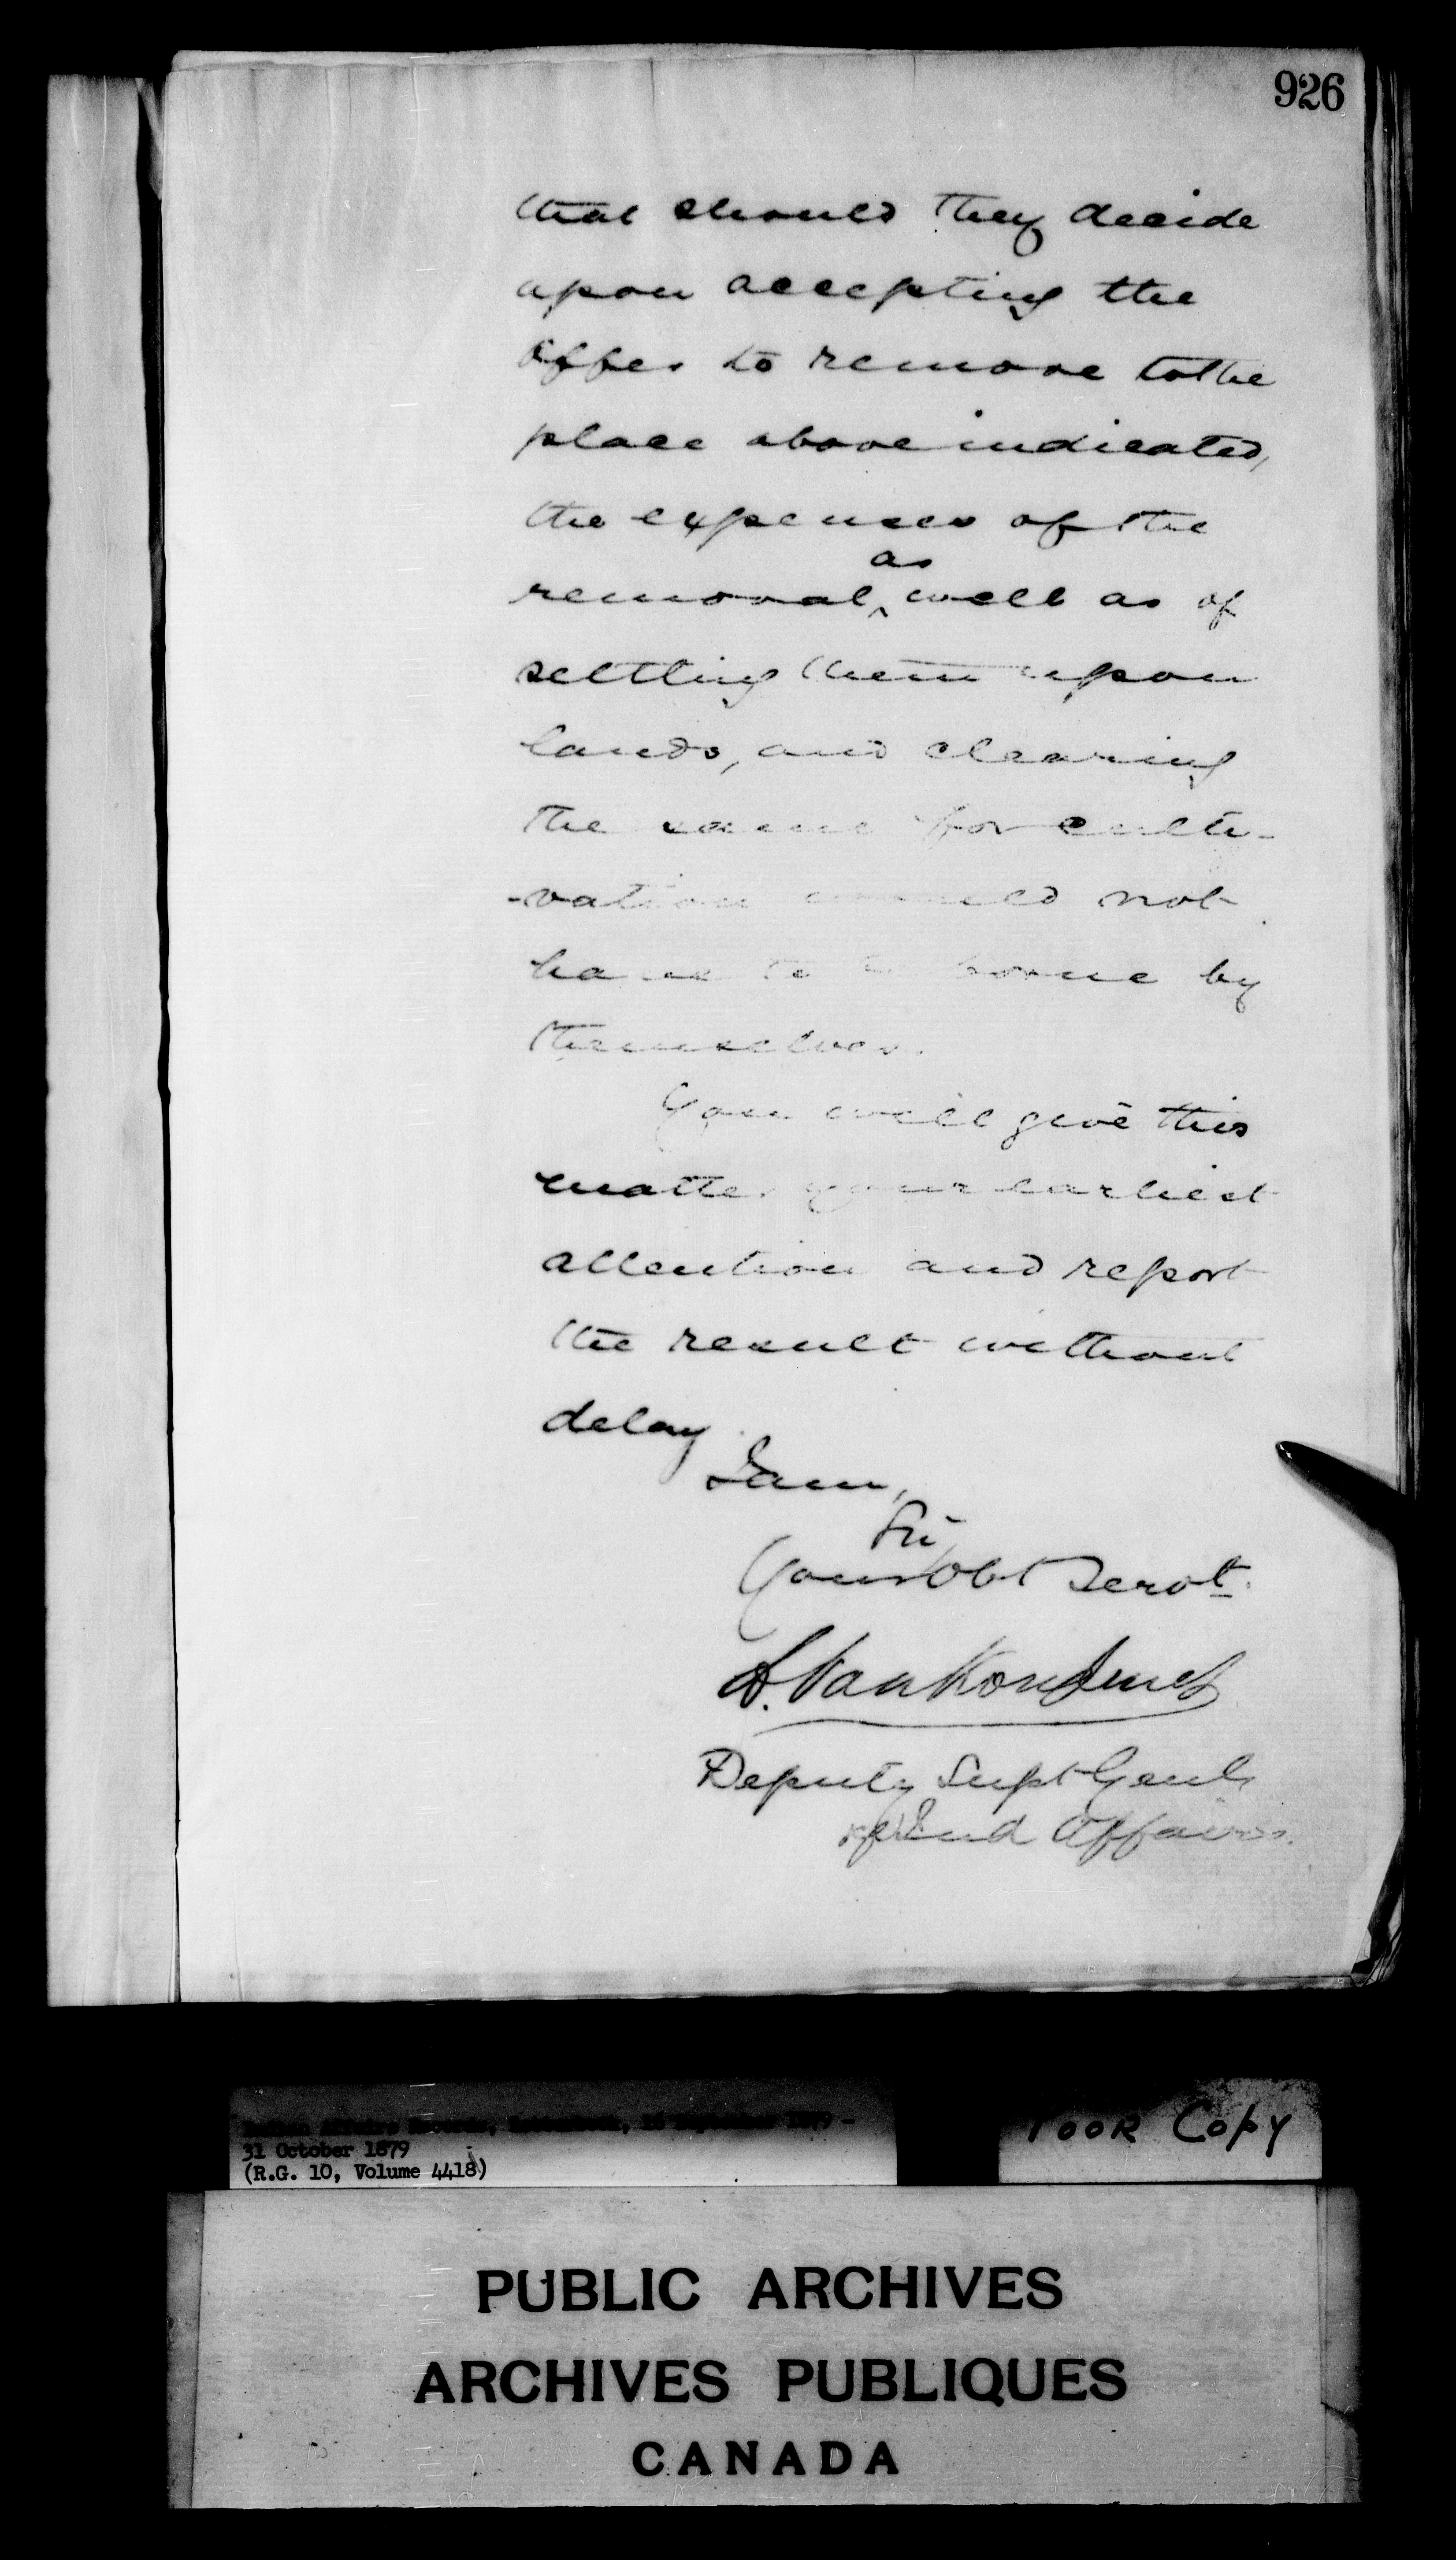 926
that should they decide
upon accepting the
offer to remove to the
place above indicated,
the expenses of the
as
removal ^ well as of
settling them upon
lands, and clearing
the same for culti-
-vation would not
have to be borne by
themselves.
You will give this
matter your earliest
attention and report
the result without
delay.
I am,
Sir
Your Obt Servt.
L. VanKoughnet
Deputy Supt Genl
of Ind Affairs.
Indian Affairs Records, Letterbook, 16 September 1879 -
31 October 1879
(R.G. 10, Volume 4418)
Poor Copy
PUBLIC ARCHIVES
ARCHIVES PUBLIQUES
CANADA